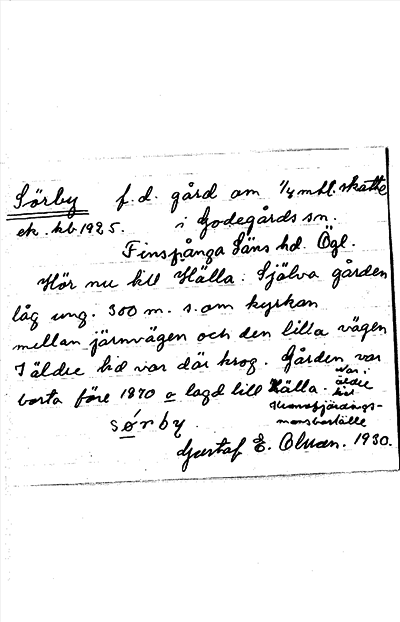 Sörby f.d. gård om 1/4 mtl. skatte
ek. kb. 1925. i Godegårds sn.
Finspånga läns hd. Ögl.
Hör nu till Hälla. Själva gården
låg ung. 300 m. s. om kyrkan
mellan järnvägen och den lilla vägen
I äldre tid var där krog. Gården var
borta före 1870 o lagd till Hälla. Var i
äldre
tid
Kronofjärdings-
mansboställe
sørby.
Gustaf E. 1930.